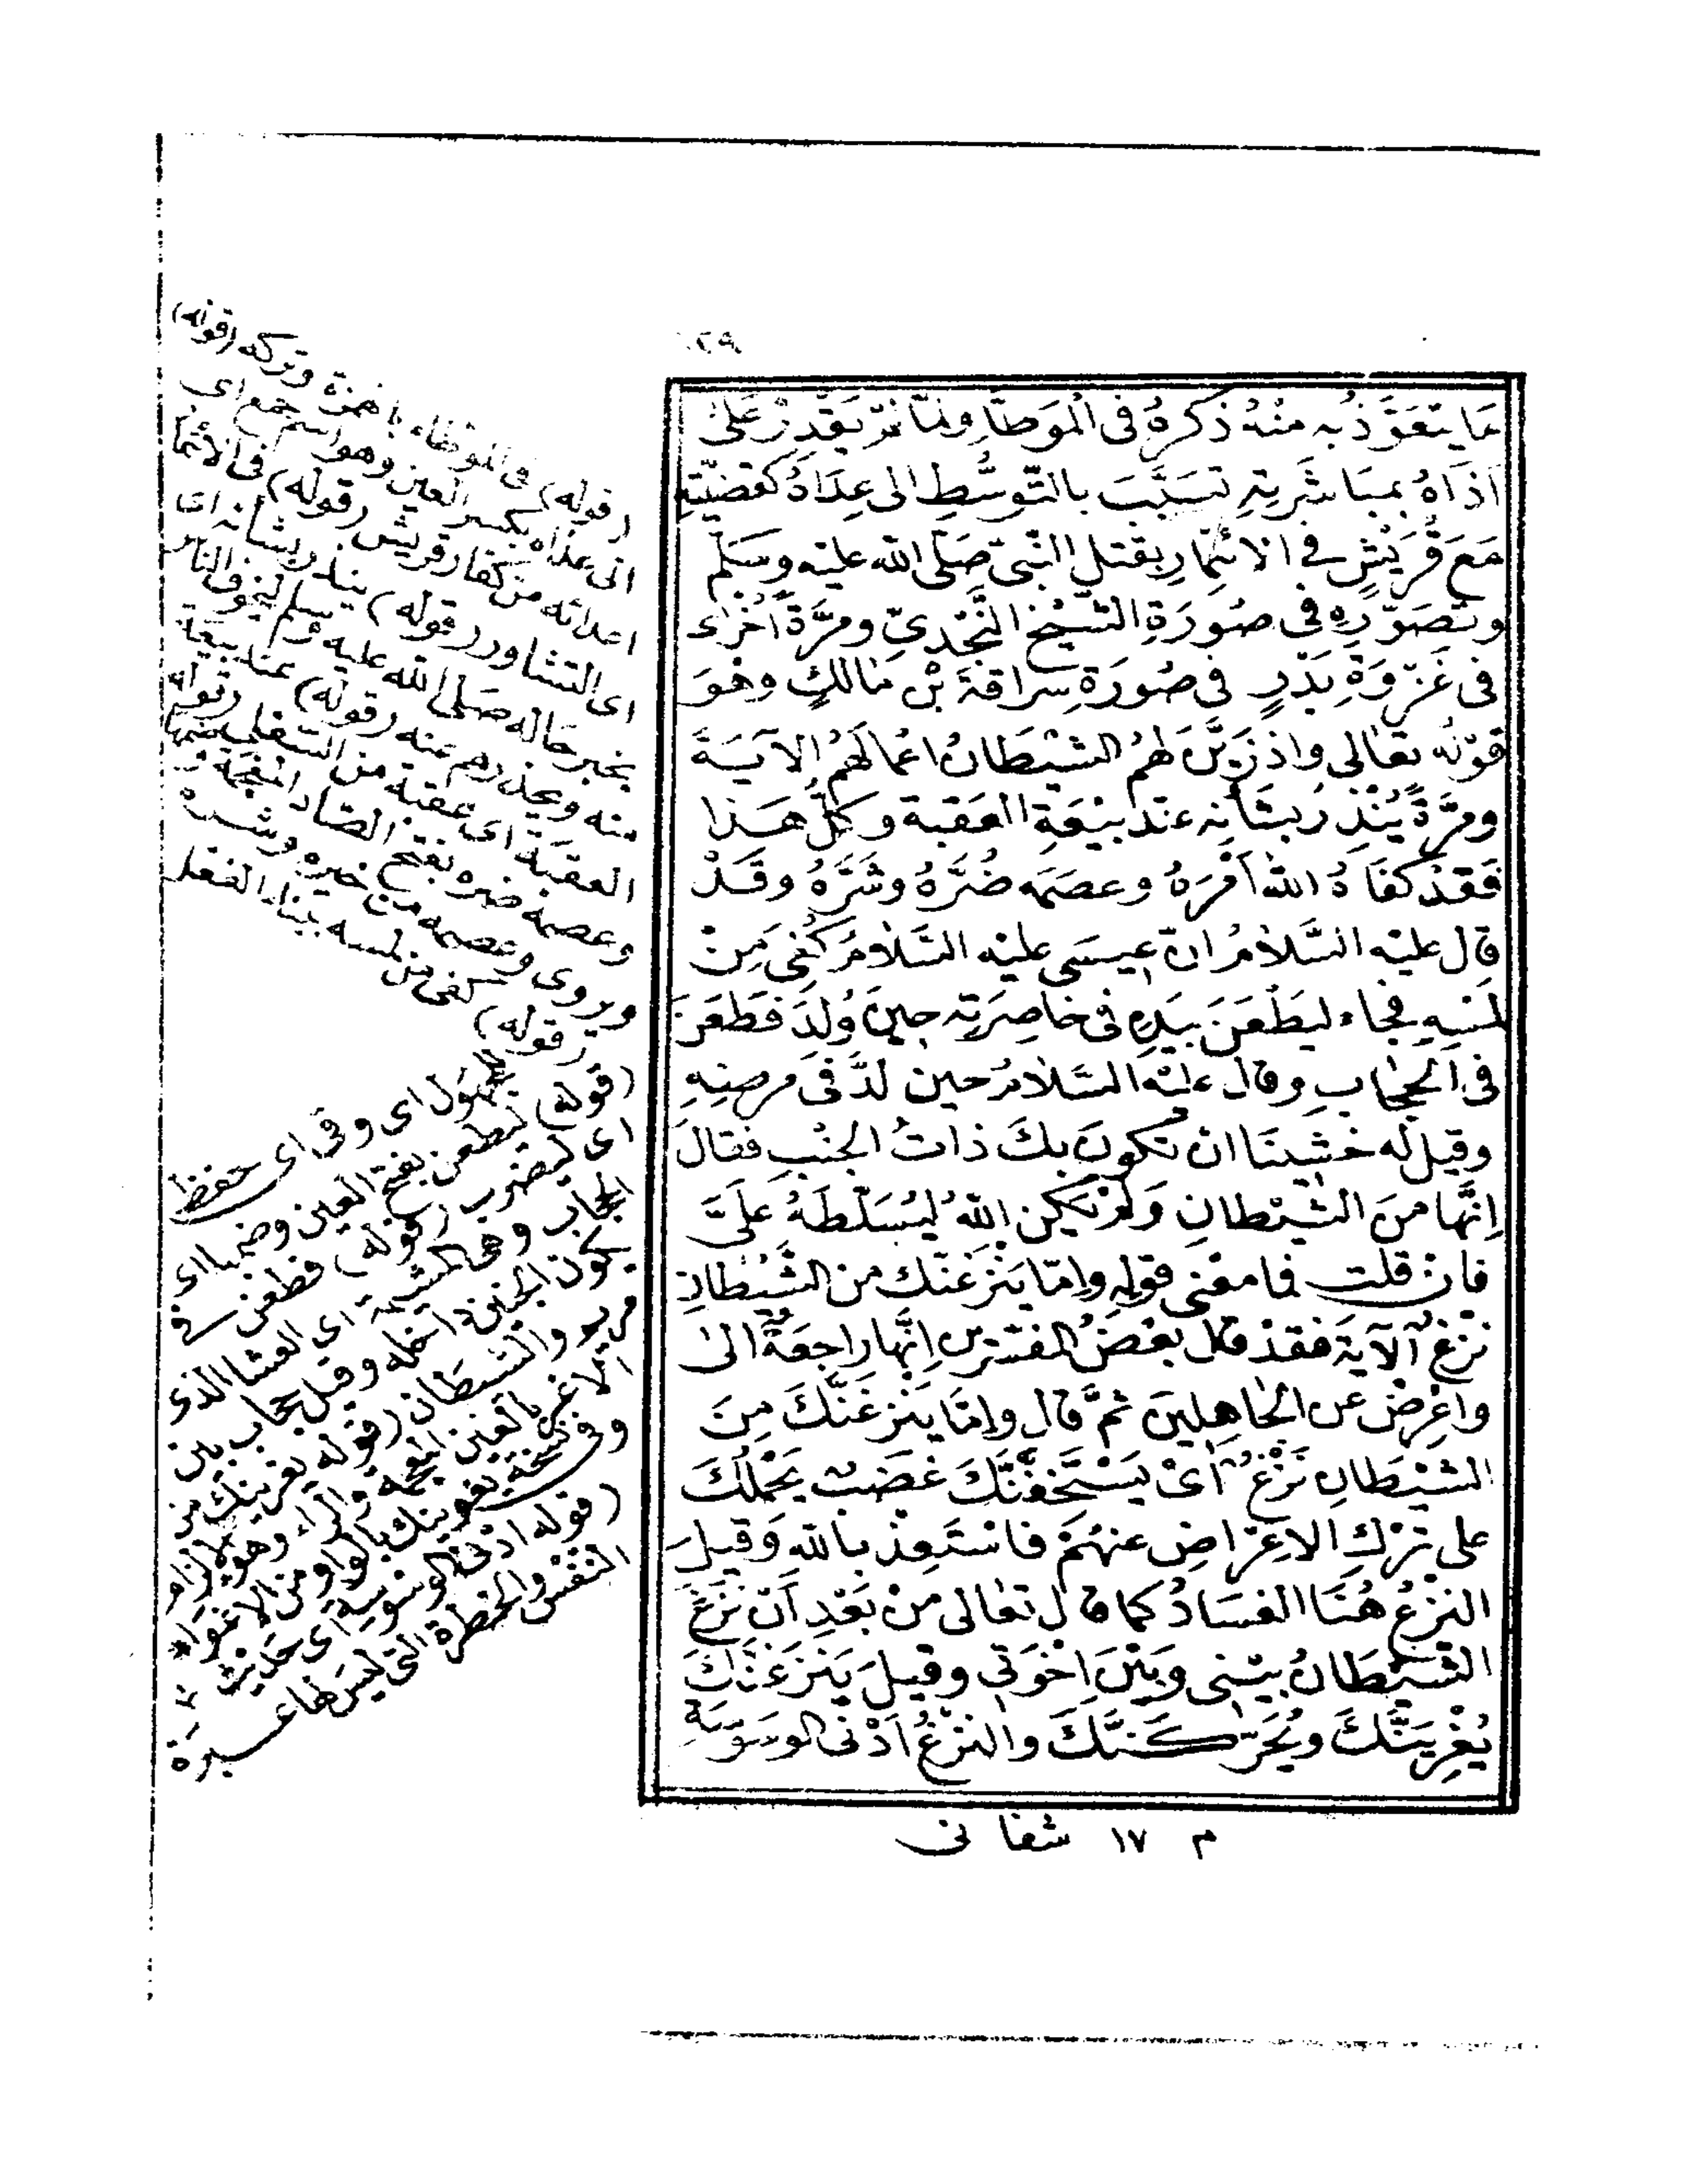 ١٢٩
مَا يَتَعَوَّذُ بِهِ مِنْهُ ذَكَرَهُ فِى الْمُوَطَّأِ وَلَمَّا لَمْ يَقْدِرْ عَلَى
اَذَاهُ بِمُبَاشَرَتِهِ تَسَبَّبَ بِالتَّوَسُّطِ اِلى عِدَاهُ كَقَضِيَّتِهِ
مَعَ قُرَيْشٍ فِى الائْتِمَارِ بِقَتْلِ النَّبِىِّ صَلَّى اللهُ عليْه وسَلَّمَ
وتَصَوُّرِهِ فى صُورَةِ الشَّيْخِ النَّجْدِىِّ ومَرَّةً اُخْرٰى
فى غَزْوَةِ بَدْرٍ فى صُورَةِ سِراقَةَ بْنِ مَالكٍ وهُوَ
قوْلُه تعَالى وَاِذْ زَيَّنَ لَهُمُ الشَّيْطَانُ اعْمَالَهُمُ الآيَةَ
ومَرَّةً يُنْذِرُ بِشَأْنِهِ عِنْدَ بَيْعَةِ العَقَبَةِ وَكُلُّ هَذا
فَقَدْ كَفَاهُ اللهُ اَمْرَهُ وعَصَمَهُ ضُرَّهُ وشَرَّهُ وقَدْ
قال عليْه السَّلامُ انّ عِيسَى عليْه السَّلامُ كُفِىَ مِنْ
لَمْسِهِ فجاء لِيَطْعَنَ بِيَدِهِ فى خَاصِرَتِهِ حِينَ وُلِدَ فطَعَنَ
فى الحِجَابِ وقال عليْه السَّلامُ حين لُدَّ فى مرضِهِ
وقيل لَه خَشِينَا ان تَكُونَ بِكَ ذَاتُ الجَنْبِ فقالَ
اِنَّها مِنَ الشَّيْطانِ وَلَمْ يَكُنِ اللهُ لِيُسَلِّطَهُ عَلَىَّ
فان قلت فما معْنى قوْلِهِ وَاِمَّا يَنْزَغَنَّكَ من الشَّيْطانِ
نَزْغٌ الآيَةَ فقَدْ قال بَعْضُ المفسّرين اِنَّها راجِعَةٌ الى
وَاَعْرِضْ عَنِ الْجَاهِلِينَ ثُمَّ قال وَاِمَّا يَنْزَغَنَّكَ مِنَ
الشَّيْطَانِ نَزْغٌ اَىْ يَسْتَخِفَّنَّكَ غَضَبٌ يَحْمِلُكَ
على تَرْكِ الاِعْرَاضِ عنهُمْ فَاسْتَعِذْ باللهِ وَقِيلَ
النَّزْغُ هُنَا الفَسَادُ كما قال تعَالى مِنْ بَعْدِ اَنْ نَزَغَ
الشَّيْطَانُ بيْنِى وَبَيْنَ اِخْوَتِى وقيلَ يَنْزَغَنَّكَ
يُغْرِيَنَّكَ ويُحَرِّكَنَّكَ والنَّزْغُ اَدْنَى الوَسْوَسَةِ
م ١٧ شفا نى
(قوله) فى الموطاء باهمزة وتركه (قوله)
الى عداه بكسر العين وهو اسم جمع اى
اعدائه من كفار قريش (قوله) فى الائتما
اى التشاور (قوله) ينذر بشأنه اى
يخبر بحاله صلى الله عليه وسلم ليخوف الناس
منه ويحذرهم عنه (قوله) عند بيعة
العقبة اى عقبة من
وعصمه ضره بفتح الضاد المعجمة
ويروى وعصمه من
(قوله) كفى من لمسه بيناء الفعل
للمجهول اى وقى اى حفظ
(قوله) ليطعن بفتح العين وضمها اى
اى ليضرب (قوله) فطعن فى
الحجاب وهى المشيمة اى الغشا الذى
يكون الجنين داخله وقيل حجاب بين
مريم والشيطان (قوله يغرينك من
الاغرا بالغين المعجمة والراء وهو الالزام
وفى نسخة يغوينك بالواو من الاغواء
(قوله ادنى الوسوسة اى حديث
النفس والخطرة التى ليس لها عبرة